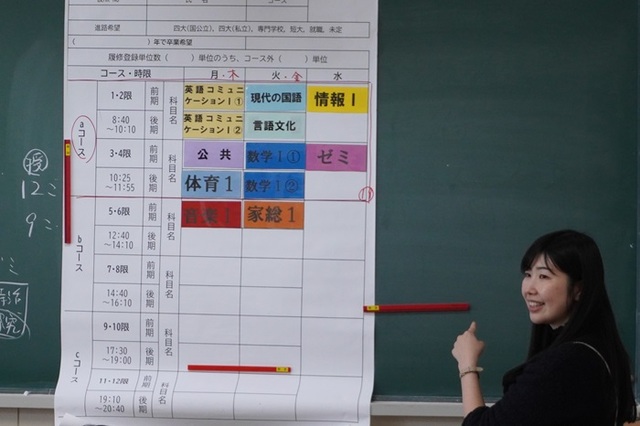 進路希望 四大(国公立), 四大(私立), 専門学校, 短大, 就職, 未定
( )年で卒業希望
履修登録単位数( )単位のうち、コース外( )単位
コース・時限 月・木 火・金 水
aコース
1・2限 前期 科目名 英語コミュニケーションⅠ① 現代の国語 情報Ⅰ
8:40～10:10 後期 英語コミュニケーションⅠ② 言語文化
3・4限 前期 科目名 公共 数学Ⅰ① ゼミ
10:25～11:55 後期 体育1 数学Ⅰ②
bコース
5・6限 前期 科目名 音楽Ⅰ 家総1
12:40～14:10 後期
7・8限 前期 科目名
14:40～16:10 後期
cコース
9・10限 前期 科目名
17:30～19:00 後期
11・12限 前期 科目名
19:10～20:40 後期
12ミ
9ミ